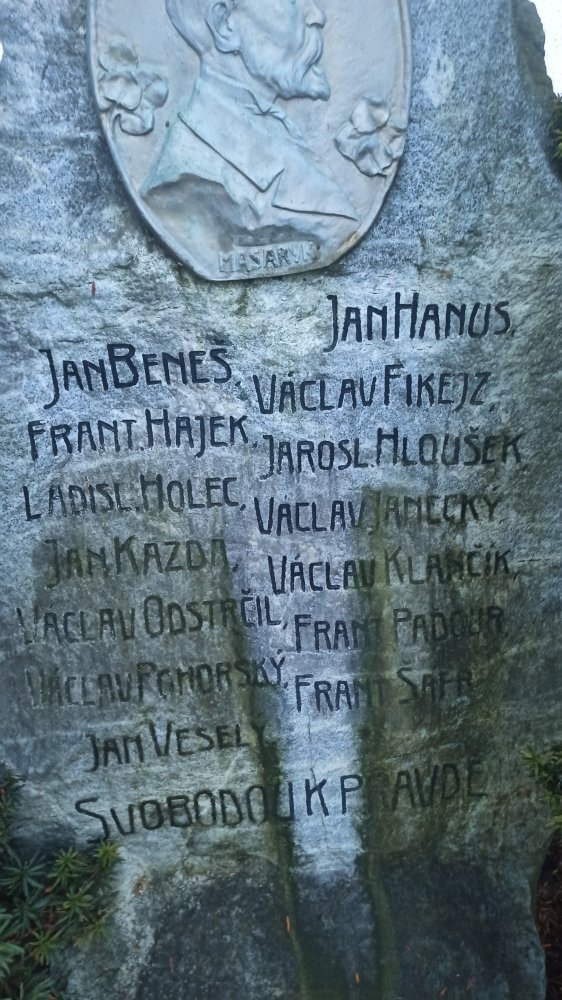 MASARYK
JAN HANUS,
JAN BENEŠ,
VÁCLAV FIKEJZ,
FRANT. HAJEK,
JAROSL. HLOUŠEK,
LADISL. HOLEC,
VÁCLAV JANECKÝ,
JAN KAZDA,
VÁCLAV KLANČÍK,
VÁCLAV ODSTRČIL,
FRANT PADOUR
VÁCLAV POHORSKÝ,
FRANT ŠAFR
JAN VESELÝ,
SVOBODOU K PRAVDĚ